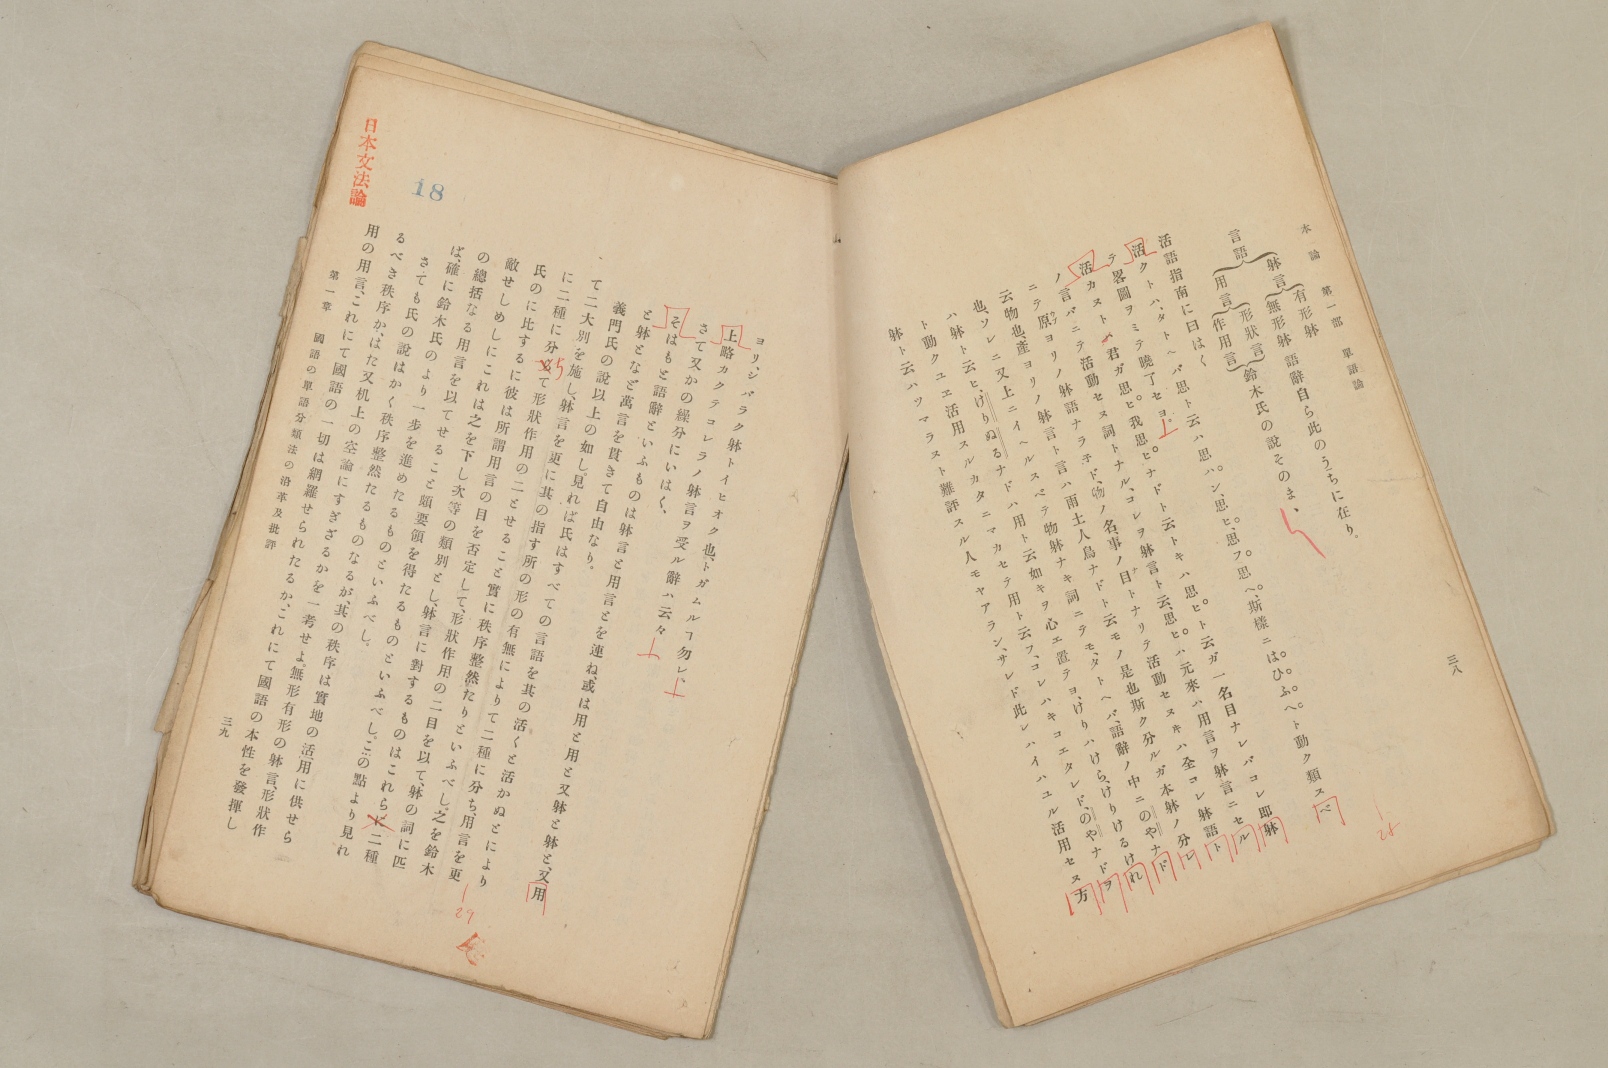 本論　第一部　單語論
三八
言語
躰言
有形躰
無形躰
語辭自ら此のうちに在り。
用言
形狀言
作用言
鈴木氏の說そのまゝ
活語指南に曰はく
活クトハタトヘバ思ト云ハ思ハン、思ヒ、思フ、思ヘ、斯樣ニはひふへト動ク類スベ
テ畧圖ヲミテ曉了セヨ
活カヌトハ君ガ思ヒ我思ヒナドト云トキハ思ヒト云ガ一名目ナレバコレ即躰
ノ言バニテ活動セヌ詞トナル、コレヲ躰言ト云、思ヒハ元來ハ用言ヲ躰言ニセル
ニテ原ヨリノ躰語ナラ子ド、物ノ名事ノ目トナリテ活動セヌヰハ全コレ躰語ト
云物也、產ヨリノ躰言ト言ハ雨土人鳥ナドト云モノ是也斯ク分ルガ本躰ノ分レ
也、ソレニ又上ニイヘルスベテ物躰ナキ詞ニテモ、タトヘバ、語辭ノ中ニのやナド
ハ躰ト云ヒ、けりぬるナドハ用ト云如キヲ心エ置テヨ、けりハけら、けりけるけれ
ト動クユヱ活用スルカタニマカセテ用ト云フ、コレハキコエタレド、のやナドヲ
躰ト云ハツマラヌト難評スル人モヤアラン、サレド此レハイハユル活用セヌ方
ヨリ、シバラク躰トイヒオク也、トガムルヿ勿レ、
上略カクテコレラノ躰言ヲ受ル辭ハ云々
さて又かの縁分にいはく、
そはもと語辭といふものは躰言と用言とを連ね、或は用と用と又躰と躰と、又用
と躰となど萬言を貫きて自由なり。
義門氏の說以上の如し。見れば氏はすべての言語を其の活くと活かぬとにより
て二大別を施し、躰言を更に其の指す所の形の有無によりて二種に分ち、用言を更
に二種に分ちて形狀作用の二とせること實に秩序整然たりといふべし。之を鈴木
氏のに比するに彼は所謂用言の目を否定して、形狀作用の二目を以て、躰の詞に匹
敵せしめしにこれは之を下し次等の類別とし、躰言に對するものはこれら二種
の總括なる用言を以てせること頗要領を得たるものといふべし。この點より見れ
ば、確に鈴木氏のより一步を進めたるものといふべし。
さても氏の說はかく秩序整然たるものなるが、其の秩序は實地の活用に供せら
るべき秩序か、はた又机上の空論にすぎざるかを一考せよ。無形有形の躰言、形狀作
用の用言、これにて國語の一切は網羅せられたるか、これにて國語の本性を發揮し
第一章　國語の單語分類法の沿革及批評
三九
日本文法論
18
28
29